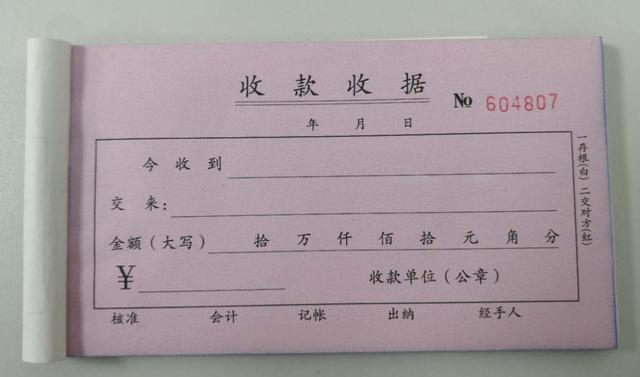 收款收据
№ 604807
年 月 日
今收到
交来:
金额(大写) 拾 万 仟 佰 拾 元 角 分
¥ 收款单位(公章)
核准 会计 记帐 出纳 经手人
一存根(白) 二交对方(红)